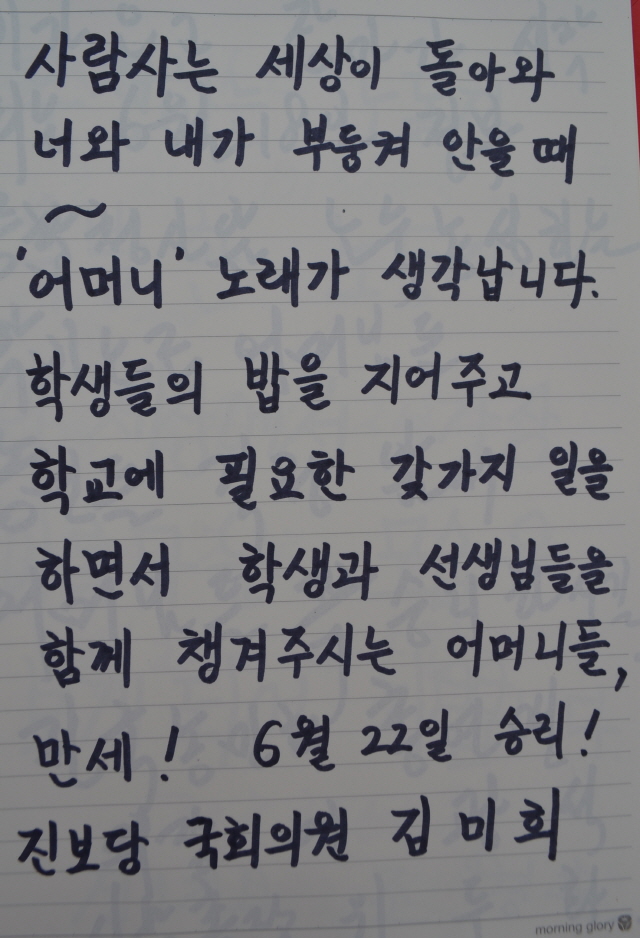 사람사는 세상이 돌아와
너와 내가 부둥켜 안을 때
~
'어머니' 노래가 생각납니다.
학생들의 밥을 지어주고
학교에 필요한 갖가지 일을
하면서 학생과 선생님들을
함께 챙겨주시는 어머니들,
만세! 6월 22일 승리!
진보당 국회의원 김미희
morning glory